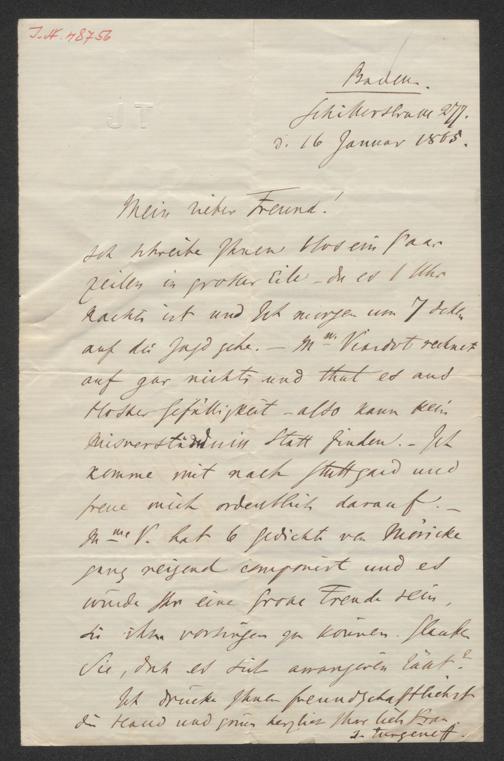 I.N. 48756
JT
Baden.
Schillerstrasse 277.
d. 16 Januar 1865.
Mein lieber Freund!
Ich schreibe Ihnen blos ein Paar
Zeilen in grosser Eile – da es 1 Uhr
Nachts ist und Ich morgen um 7 schon
auf die Jagd gehe. – Mme Viardot rechnet
auf gar nichts und thut es aus
blosser Gefälligkeit – also kann kein
Misverständniss statt finden. – Ich
komme mit nach Stuttgard und
freue mich ordentlich darauf. –
Mme V. hat 6 Gedichte von Möricke
ganz reizend componirt und es
würde Ihr eine grosse Freude sein,
sie ihm vorsingen zu können. Glauben
Sie, dass es sich arrangiren lässt?
Ich drücke Ihnen freundschaftlichst
die Hand und grüsse herzlich Ihre liebe Frau
I. Turgeneff.